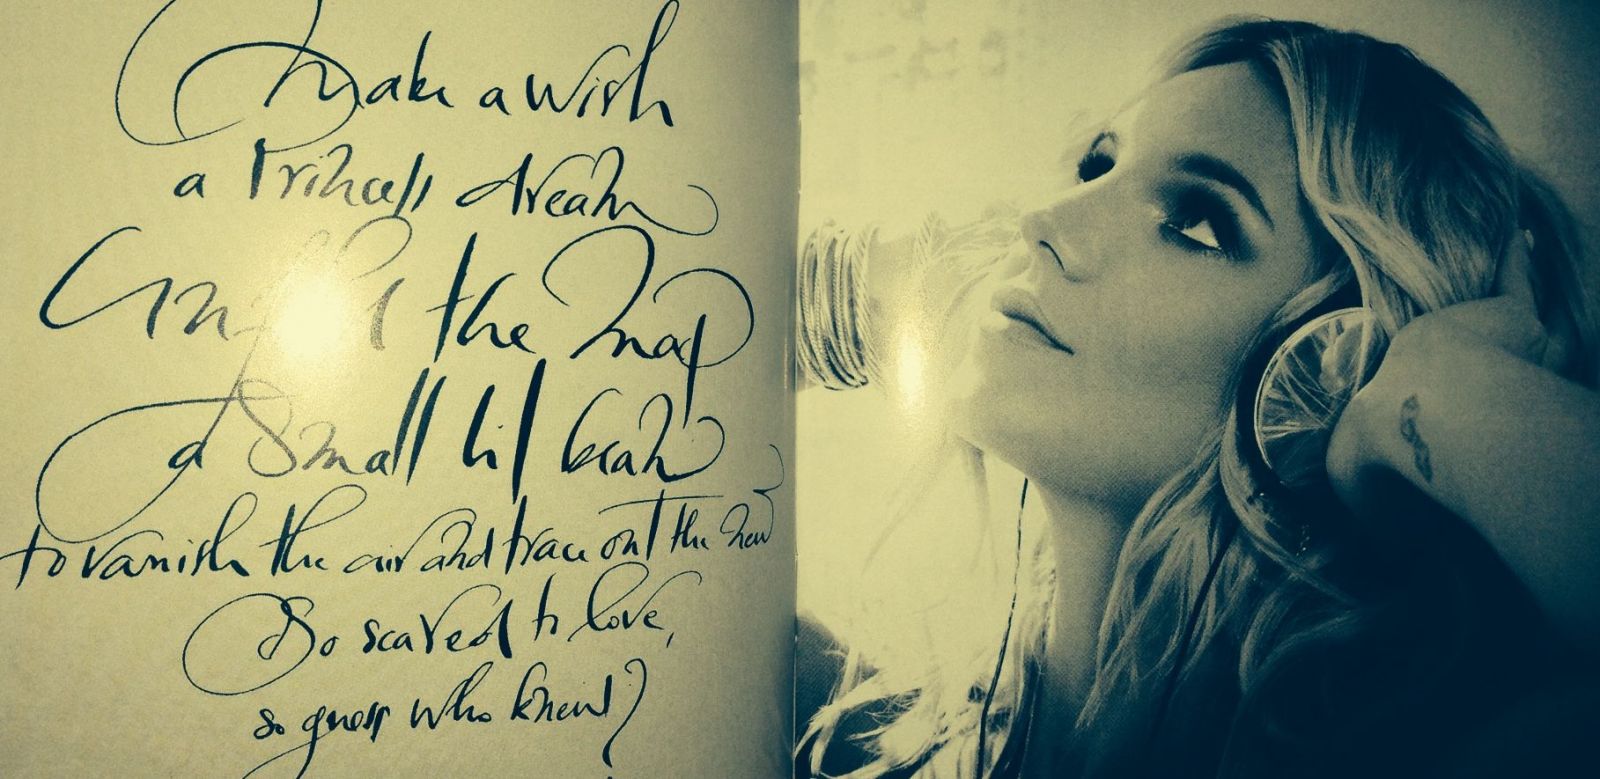 Make a wish
a Princess dream
the map
a Small lil
to vanish the air and trace out the new
So scared to love,
so guess who knew?